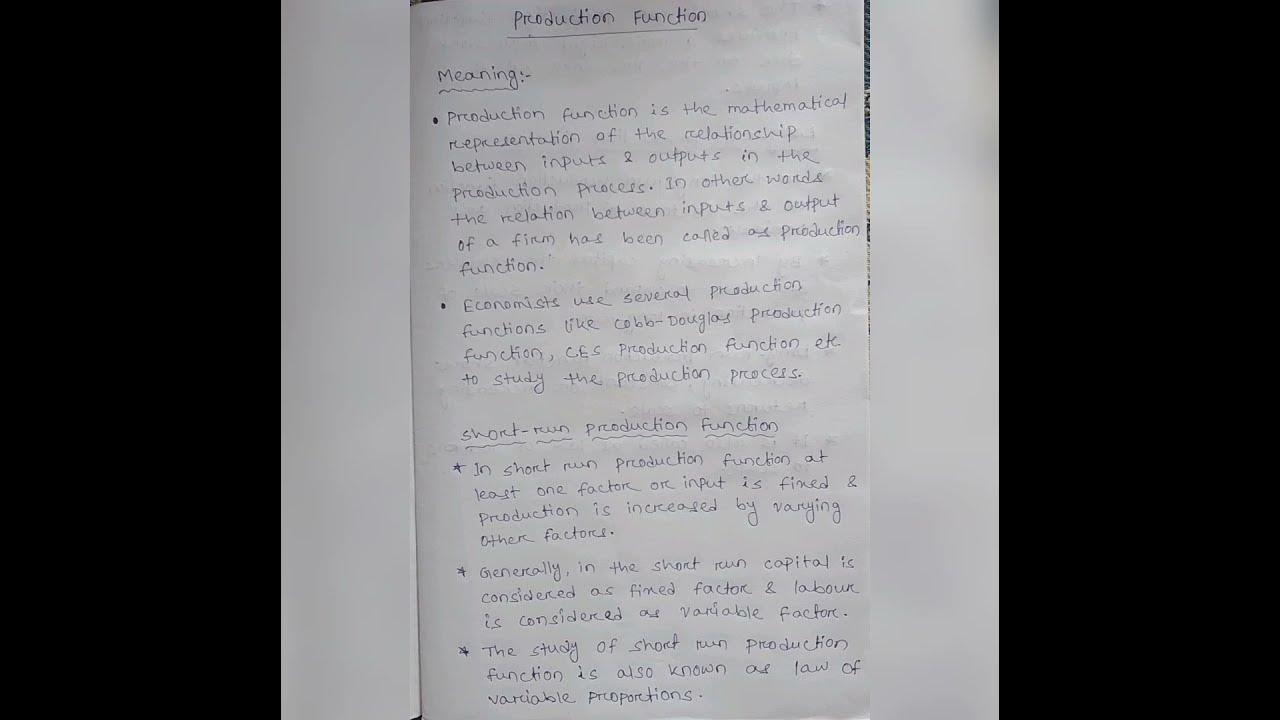 Production Function
Meaning:-
• Production function is the mathematical
representation of the relationship
between inputs & outputs in the
production process. In other words
the relation between inputs & output
of a firm has been called as production
function.
• Economists use several production
functions like Cobb-Douglas production
function, CES production function etc
to study the production process.
Short-run production function
* In short run production function at
least one factor or input is fixed &
production is increased by varying
other factors.
* Generally, in the short run capital is
considered as fixed factor & labour
is considered as variable factor.
* The study of short run production
function is also known as law of
variable proportions.